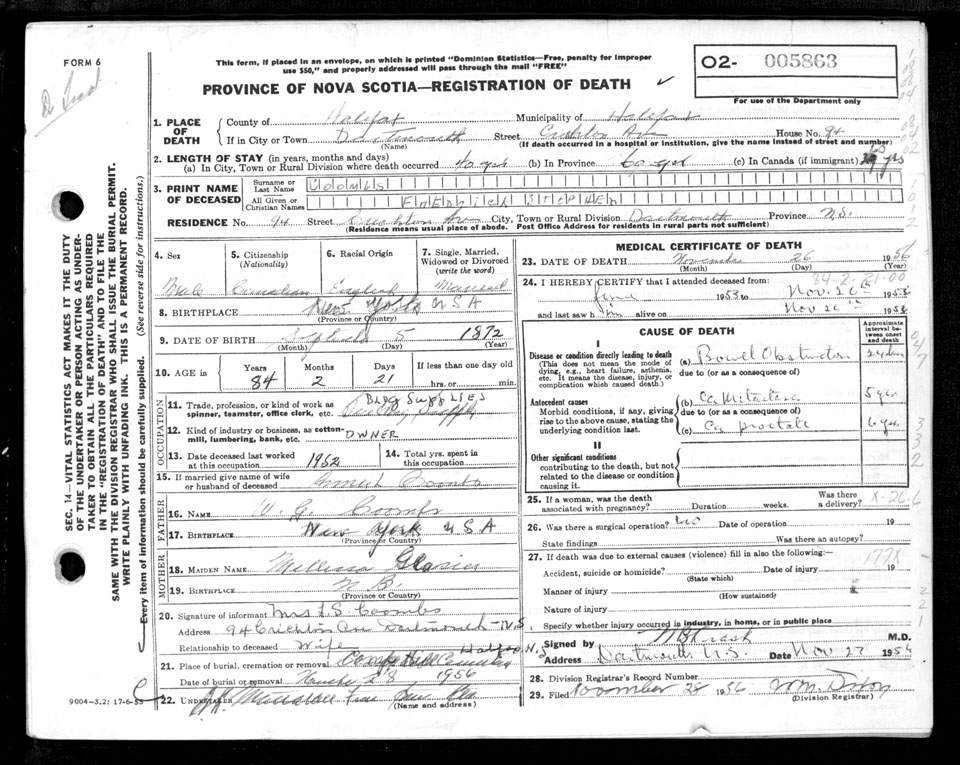 FORM 6
This form, if placed in an envelope, on which is printed "Dominion Statistics—Free, penalty for improper
use $50," and properly addressed will pass through the mail "FREE"
02- 005863
For use of the Department only
PROVINCE OF NOVA SCOTIA—REGISTRATION OF DEATH
1. PLACE OF DEATH County of Halifax Municipality of Halifax
If in City or Town Dartmouth (Name) Street Crichton Ave House No. 94
(If death occurred in a hospital or institution, give the name instead of street and number)
2. LENGTH OF STAY (in years, months and days)
(a) In City, Town or Rural Division where death occurred (b) In Province (c) In Canada (if immigrant) yrs
3. PRINT NAME OF DECEASED Surname or Last Name COOMBS
All Given or Christian Names STEPHEN
RESIDENCE No. 94 Street Crichton Ave City, Town or Rural Division Dartmouth Province N.S.
(Residence means usual place of abode. Post Office Address for residents in rural parts not sufficient)
SEC. 14—VITAL STATISTICS ACT MAKES IT THE DUTY
OF THE UNDERTAKER OR PERSON ACTING AS UNDER-
TAKER TO OBTAIN ALL THE PARTICULARS REQUIRED
IN THE "REGISTRATION OF DEATH" AND TO FILE THE
SAME WITH THE DIVISION REGISTRAR WHO SHALL ISSUE THE BURIAL PERMIT.
WRITE PLAINLY WITH UNFADING INK. THIS IS A PERMANENT RECORD.
Every item of information should be carefully supplied. (See reverse side for instructions.)
4. Sex Male
5. Citizenship (Nationality) Canadian
6. Racial Origin English
7. Single, Married, Widowed or Divorced (write the word) Married
8. BIRTHPLACE New York USA
(Province or Country)
9. DATE OF BIRTH 5 1872
(Month) (Day) (Year)
10. AGE in Years 84 Months 2 Days 21 If less than one day old hrs. or min.
OCCUPATION
11. Trade, profession, or kind of work as spinner, teamster, office clerk, etc. BLDG SUPPLIES
12. Kind of industry or business, as cotton-mill, lumbering, bank, etc. OWNER
13. Date deceased last worked at this occupation 1952
14. Total yrs. spent in this occupation
15. If married give name of wife or husband of deceased Coombs
FATHER
16. NAME W. G. Coombs
17. BIRTHPLACE New York USA
(Province or Country)
MOTHER
18. MAIDEN NAME Mellissa Glasier
19. BIRTHPLACE N B.
(Province or Country)
20. Signature of informant Mrs F. S. Coombs
Address 94 Crichton Ave Dartmouth N.S
Relationship to deceased Wife
21. Place of burial, cremation or removal Camp Hill Cemetery Halifax N.S
Date of burial or removal 28 1956
22. UNDERTAKER
(Name and address)
9004—3.2: 17-6-53
MEDICAL CERTIFICATE OF DEATH
23. DATE OF DEATH November 26 1956
(Month) (Day) (Year)
24. I HEREBY CERTIFY that I attended deceased from:
June 1953 to Nov. 26th 1956
and last saw him alive on Nov 26th 1956
CAUSE OF DEATH
Approximate interval between onset and death
I
Disease or condition directly leading to death (a) Bowel Obstruction
(This does not mean the mode of dying, e.g., heart failure, asthenia, etc. It means the disease, injury, or complication which caused death.)
due to (or as a consequence of)
Antecedent causes (b) Ca
Morbid conditions, if any, giving rise to the above cause, stating the underlying condition last.
due to (or as a consequence of)
(c) Ca prostate 6 yrs.
II
Other significant conditions
contributing to the death, but not related to the disease or condition causing it.
25. If a woman, was the death associated with pregnancy? Duration weeks. Was there a delivery?
26. Was there a surgical operation? no Date of operation 19
State findings Was there an autopsy?
27. If death was due to external causes (violence) fill in also the following:— 177X
Accident, suicide or homicide? (State which) Date of injury 19
Manner of injury (How sustained)
Nature of injury
Specify whether injury occurred in industry, in home, or in public place
Signed by M.D.
Address Dartmouth N.S. Date Nov 27 1956
28. Division Registrar's Record Number
29. Filed November 28 1956
(Division Registrar)